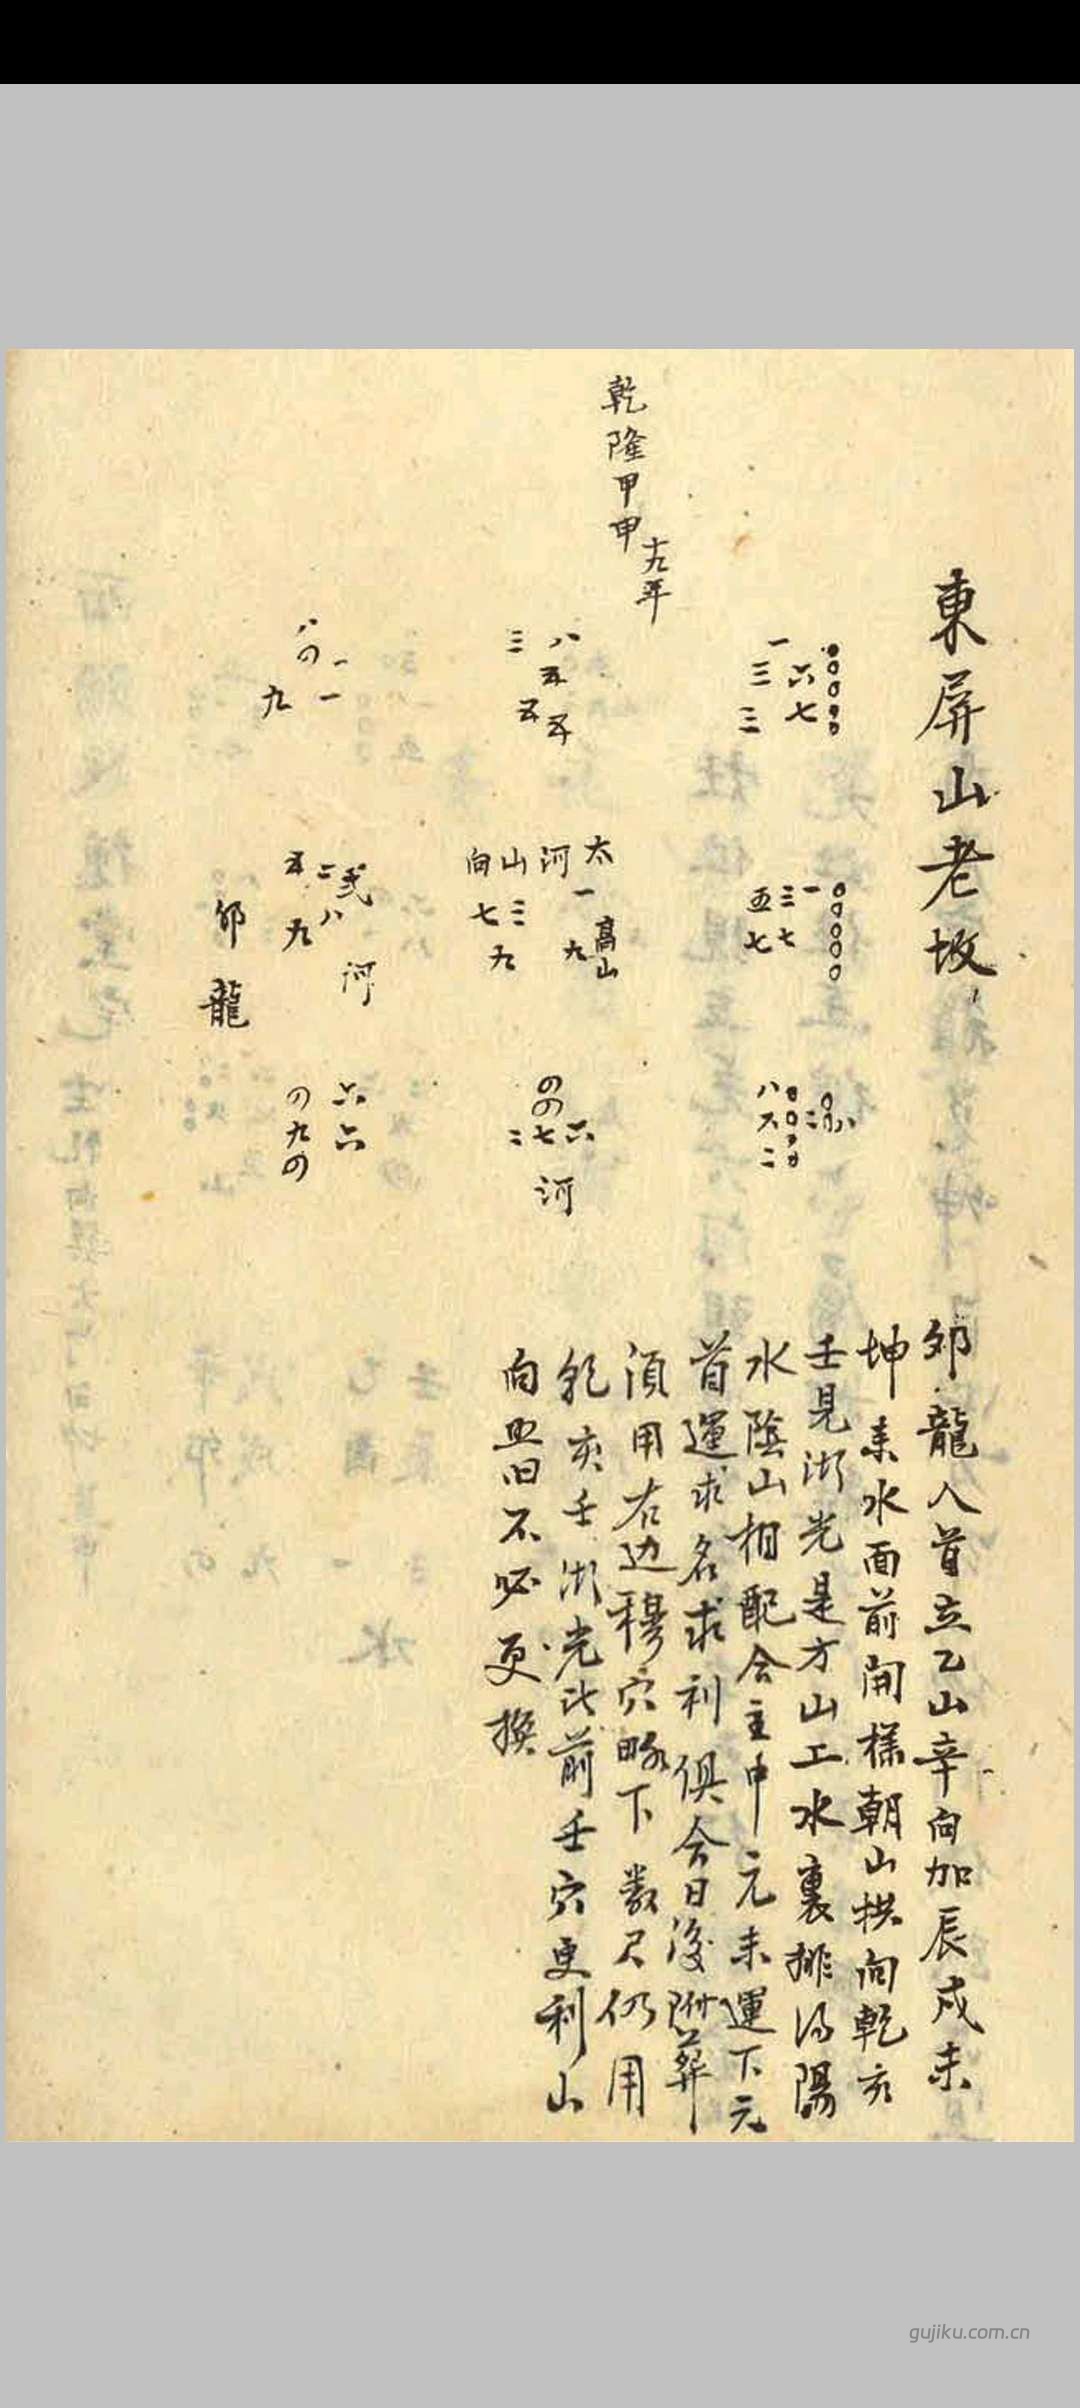 東屏山老坟
卯龍入首立乙山辛向加辰戌未
坤来水面前開樣朝山拱向乾亥
壬見湖光是方山上水裏排得陽
水陰山相配合主中元未運下元
首運求名求利俱合日後附葬
須用右边穆穴略下数尺仍用
乾亥壬湖光比前壬穴更利山
向照旧不必更換
乾隆甲申
十九年
一 六
三 七
三
八
三 五
五 五
八
の 一
九 一
一
三 七
五 七
太
河
山
向
一
高山
九
三
七
九
弍
二
五
八
九
河
卯龍
八
二
八
六
二
の
の
六
七
二
河
六
六
の
九
の
gujiku.com.cn